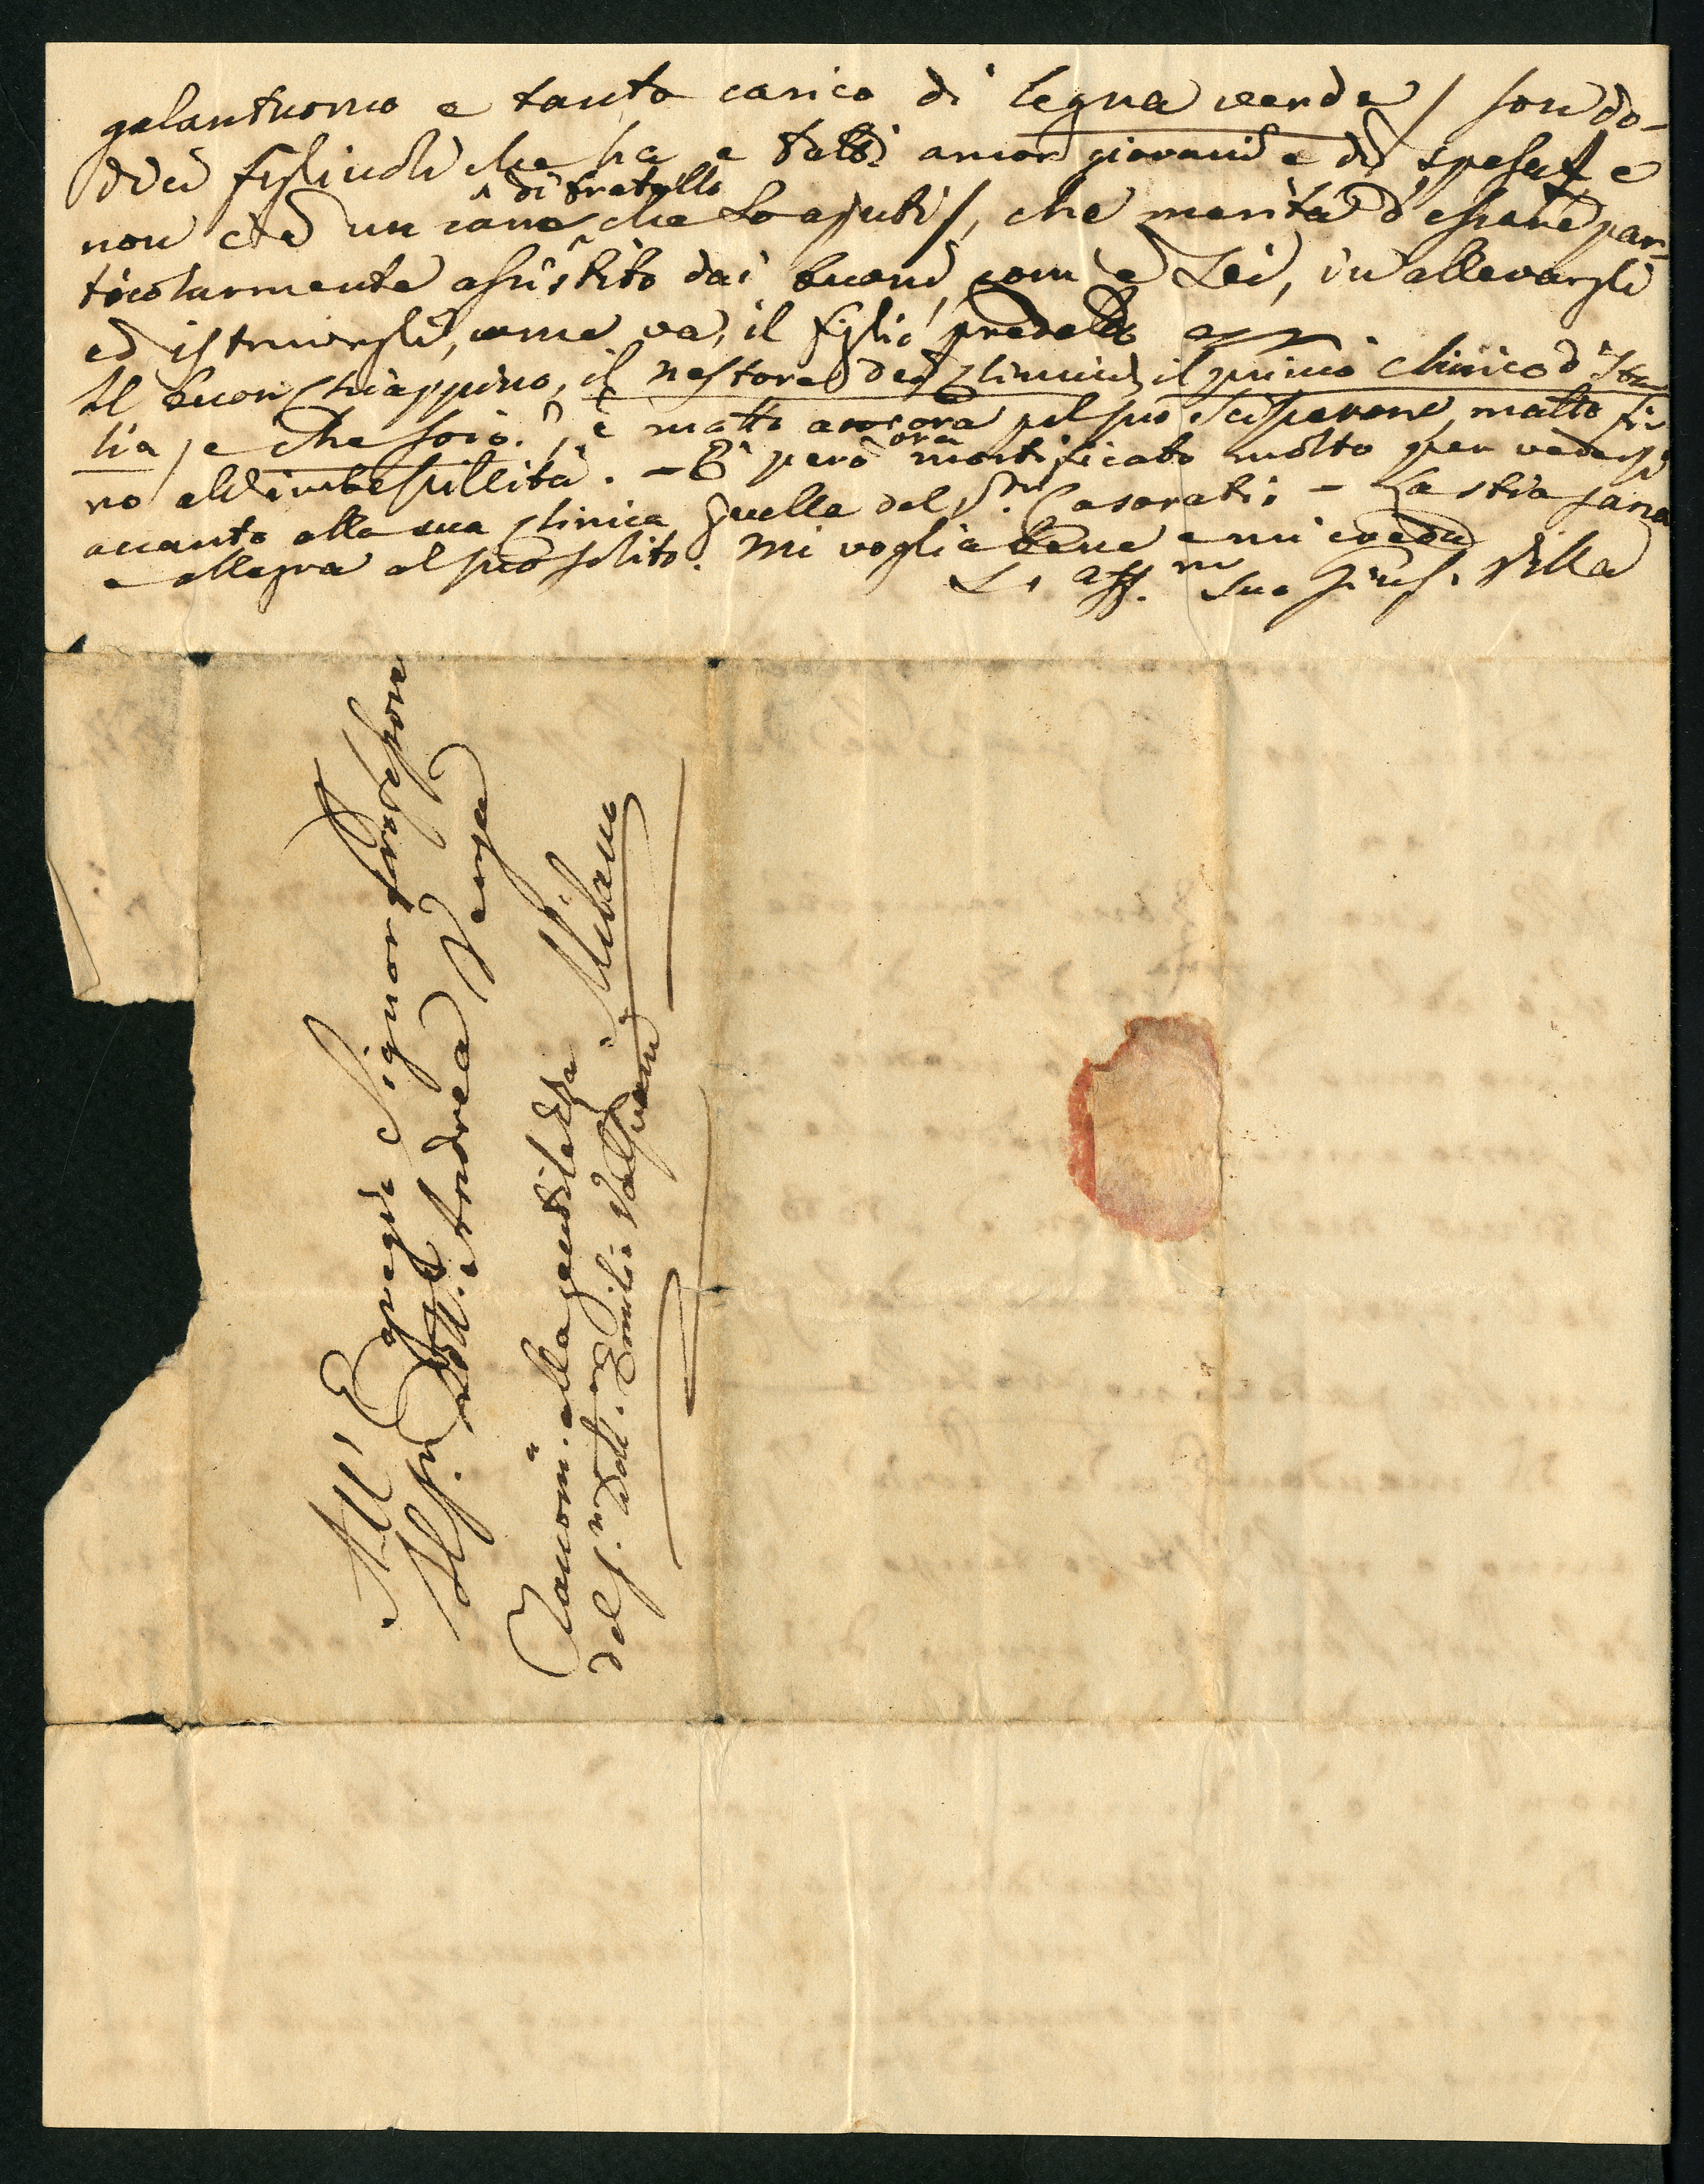 galantuomo e tanto carico di legna verde / son do-
dici figliuoli che ha e tutti ancor giovani e di spesa / e
non c'è un cane di fratello che lo ajuti /, che merita d'essere par-
ticolarmente assistito dai buoni, com'è Lei, in allevargli
ed istruirgli, come va, il figlio predetto
Il buon Chiappino, il nestore dei Clinici, il primo clinico d'Ita-
lia, e che so io?, è matto ancora pel suo Scisperone, matto fi-
no all'imbesillità. - È però ora mortificato molto per vedersi
accanto alla sua clinica quella del D.r Casorati. - La stia sana
e allegra al suo solito. Mi voglia bene e mi creda
L' aff.mo suo Gius. Villa
All' Egregio Signor Professore
Il Sig.r Dott. Andrea Verga
Raccom.a alla gentilezza
del S.r Dott. Emilio Valsuani
Milano